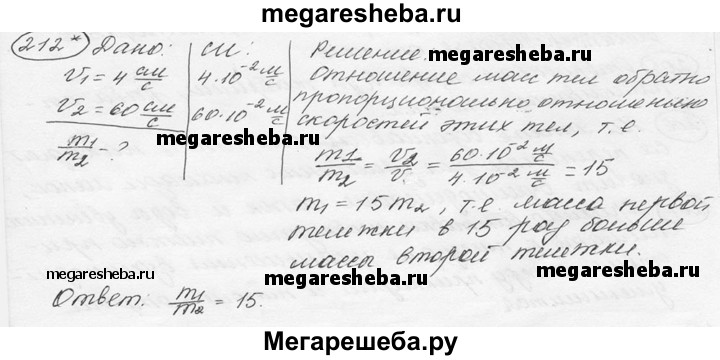 megaresheba.ru
212* Дано:
v1 = 4 см/с
v2 = 60 см/с
m1/m2 - ?
СИ:
4·10^-2 м/с
60·10^-2 м/с
Решение.
Отношение масс тел обратно
пропорционально отношению
скоростей этих тел, т.е.
m1/m2 = v2/v1 = 60·10^-2 м/с / 4·10^-2 м/с = 15
m1 = 15m2, т.е. масса первой
тележки в 15 раз больше
массы второй тележки.
Ответ. m1/m2 = 15.
megaresheba.ru
megaresheba.ru
megaresheba.ru
megaresheba.ru
megaresheba.ru
Мегарешеба.ру